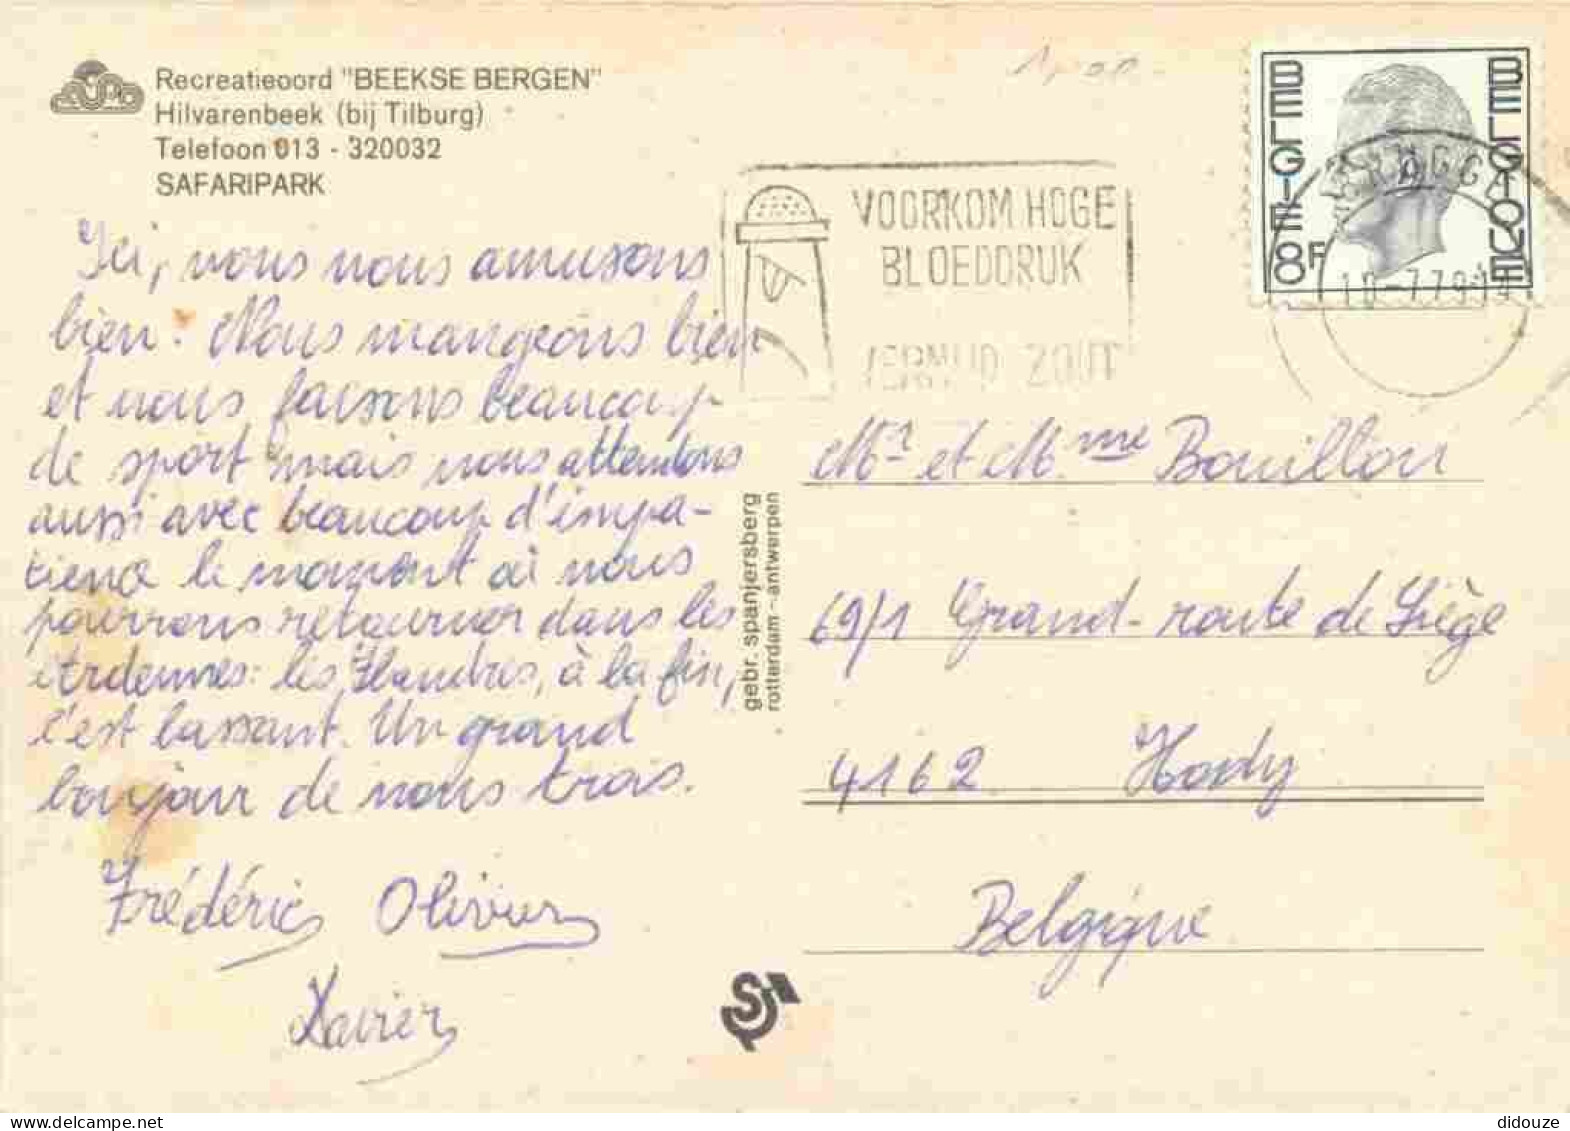 Recreatieoord "BEEKSE BERGEN"
Hilvarenbeek (bij Tilburg)
Telefoon 013 - 320032
SAFARIPARK
Ici, nous nous amusons
bien. Nous mangeons bien
et nous faisons beaucoup
de sport mais nous attendons
aussi avec beaucoup d'impa-
tience le moment où nous
pourrons retourner dans les
Ardennes: les Flandres, à la fin,
c'est lassant. Un grand
bonjour de nous trois.
Frédéric Olivier
Xavier
gebr. spanjersberg
rotterdam - antwerpen
VOORKOM HOGE
BLOEDDRUK
VERMIJD ZOUT
BELGIE
8F
BELGIQUE
Mr et Mme Bouillon
69/1 Grand-route de Liège
4162 Hody
Belgique
didouze